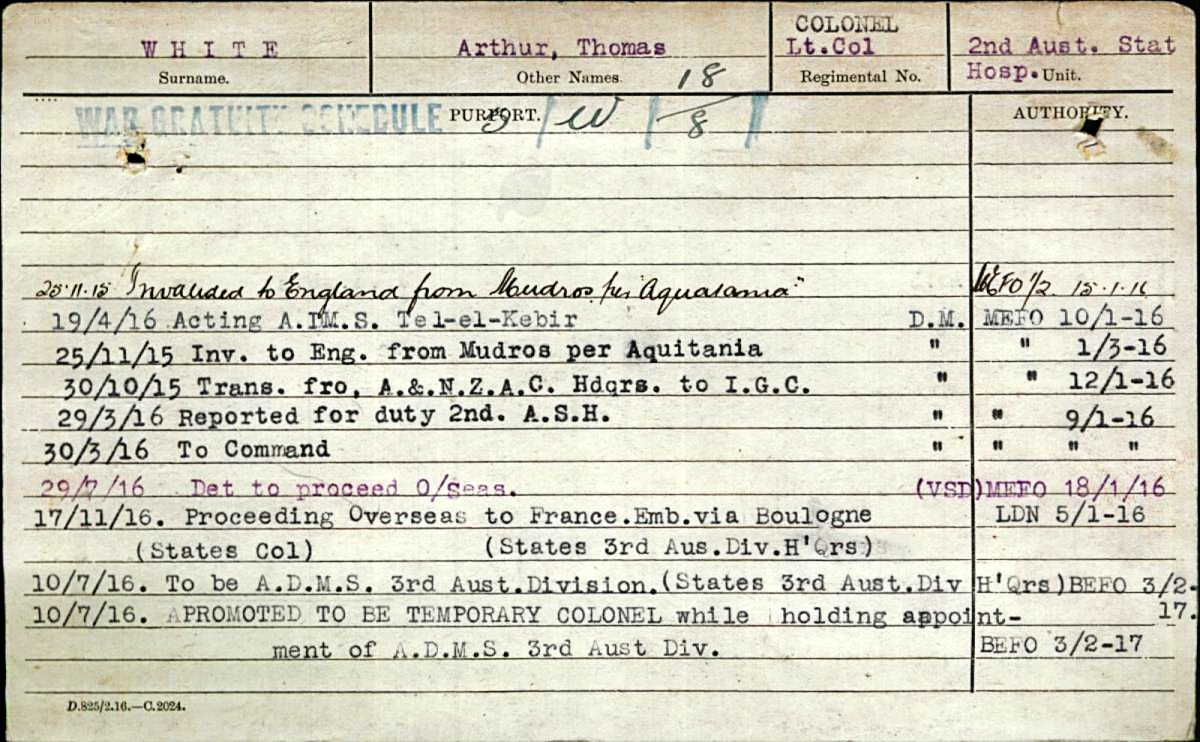 COLONEL
W H I T E Arthur, Thomas Lt.Col 2nd Aust. Stat
Surname. Other Names Regimental No. Hosp. Unit.
18
WAR GRATUITY SCHEDULE PURPORT. W 8 AUTHORITY.
25.11.15 Invalided to England from Mudros per "Aquatania" MEFO 1/2 15.1.16
19/4/16 Acting A.D.M.S. Tel-el-Kebir D.M. MEFO 10/1-16
25/11/15 Inv. to Eng. from Mudros per Aquitania " " 1/3-16
30/10/15 Trans. fro, A.&.N.Z.A.C. Hdqrs. to I.G.C. " " 12/1-16
29/3/16 Reported for duty 2nd. A.S.H. " " 9/1-16
30/3/16 To Command " " " "
29/7/16 Det to proceed O/Seas. (VSD)MEFO 18/1/16
17/11/16. Proceeding Overseas to France.Emb.via Boulogne LDN 5/1-16
(States Col) (States 3rd Aus.Div.H'Qrs)
10/7/16. To be A.D.M.S. 3rd Aust.Division.(States 3rd Aust.Div H'Qrs)BEFO 3/2-
17.
10/7/16. APROMOTED TO BE TEMPORARY COLONEL while holding appoint-
ment of A.D.M.S. 3rd Aust Div. BEFO 3/2-17
D.825/2.16.—C.2024.